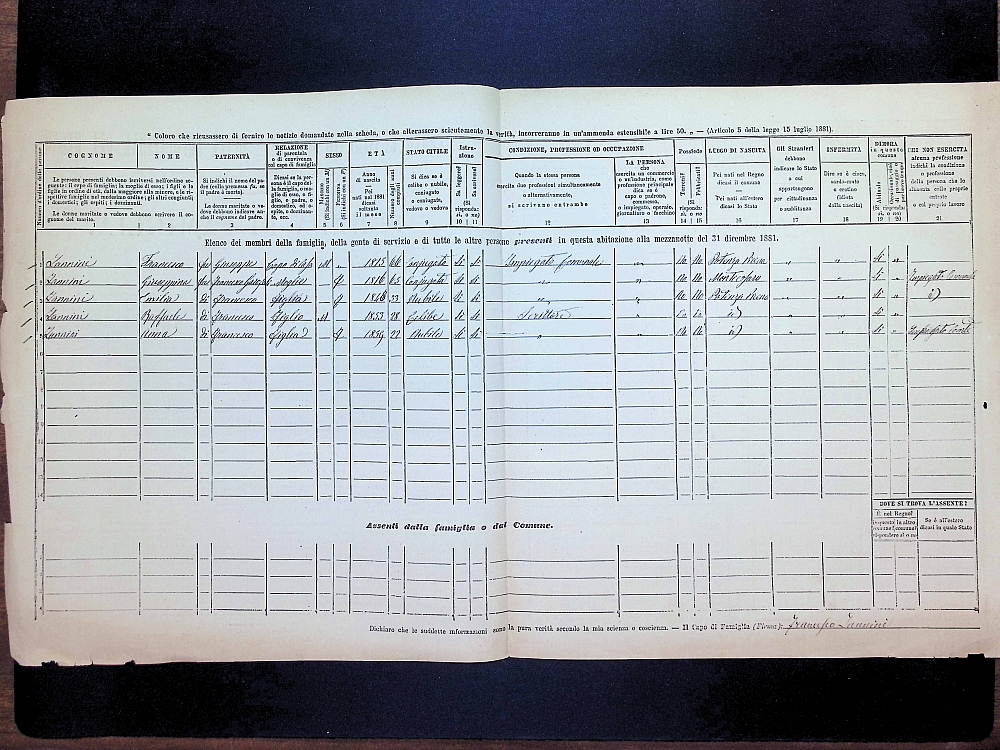 “ Coloro che ricusassero di fornire le notizie domandate nella scheda, o che alterassero scientemente la verità, incorreranno in un'ammenda estensibile a lire 50. „ — (Articolo 5 della legge 15 luglio 1881).
COGNOME NOME PATERNITÀ RELAZIONE di parentela o di convivenza col capo di famiglia SESSO ETÀ STATO CIVILE Istruzione CONDIZIONE, PROFESSIONE OD OCCUPAZIONE Possiede LUOGO DI NASCITA Gli Stranieri debbono indicare lo Stato a cui appartengono per cittadinanza o sudditanza INFERMITÀ DIMORA in questo comune CHI NON ESERCITA alcuna professione indichi la condizione o professione della persona che lo alimenta colle proprie entrate o col proprio lavoro
Le persone presenti debbono iscriversi nell'ordine seguente: il capo di famiglia; la moglie di esso; i figli e le figlie in ordine di età, dalla maggiore alla minore, e le rispettive famiglie nel medesimo ordine; gli altri congiunti; i domestici; gli ospiti; i dozzinanti.
Le donne maritate o vedove debbono scrivere il cognome del marito.
Si indichi il nome del padre (colla premessa fu, se il padre è morto).
Le donne maritate o vedove debbono indicare anche il cognome del padre.
Dicasi se la persona è il capo della famiglia, o moglie di esso, o figlio, o padre, o domestico, od ospite, o dozzinante, ecc.
Maschi (Si indichi con un M)
Femmine (Si indichi con un F)
Anno di nascita
Pei nati nel 1881 dicasi soltanto il mese
Numero degli anni compiuti
Si dica se è celibe o nubile, coniugato o coniugata, vedovo o vedova
Sa leggere?
Sa scrivere?
(Si risponda: sì, o no)
Quando la stessa persona esercita due professioni simultaneamente o alternativamente, si scrivano entrambe
LA PERSONA che esercita un commercio o un'industria, come professione principale dica se è capo o padrone, commesso, o impiegato, operaio, giornaliero o facchino
(Si risponda: sì, o no)
Pei nati nel Regno dicasi il comune
Pei nati all'estero dicasi lo Stato
Dire se è cieco, sordo-muto o cretino (idiota dalla nascita)
Abituale
1 2 3 4 5 6 7 8 9 10 11 12 13 14 15 16 17 18 19 20 21
Elenco dei membri della famiglia, della gente di servizio e di tutte le altre persone presenti in questa abitazione alla mezzanotte del 31 dicembre 1881.
1 Iannini Francesco fu Giuseppe Capo di casa M „ 1815 66 Conjugato Sì Sì Impiegato Comunale „ No No Potenza Picena „ „ Sì „
2 Iannini Giuseppina fu Francesco Moglie „ F 1816 65 Conjugata Sì Sì „ „ No No „ „ Sì „ Impiegato Comunale
3 Iannini Emilia di Francesco Figlia „ F 33 Nubile Sì Sì „ „ No No „ „ Sì „ id
4 Iannini Raffaele di Francesco Figlio M „ 1853 28 Celibe Sì Sì Scrittore „ id „ „ Sì „
5 Iannini Anna di Francesco Figlia „ F 1859 22 Nubile Sì Sì „ „ id „ „ Sì „
DOVE SI TROVA L'ASSENTE?
È nel Regno?
in questo comune
in altro comune
(Rispondere sì o no)
Se è all'estero dicasi in quale Stato
Assenti dalla famiglia o dal Comune.
Dichiaro che le suddette informazioni sono la pura verità secondo la mia scienza e coscienza. — Il Capo di Famiglia (Firma): Francesco Iannini